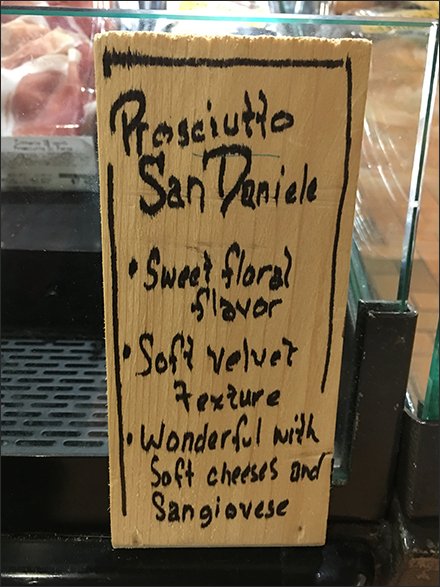 Prosciutto
San Daniele
• Sweet floral
flavor
• Soft velvet
texture
• Wonderful with
Soft cheeses and
Sangiovese